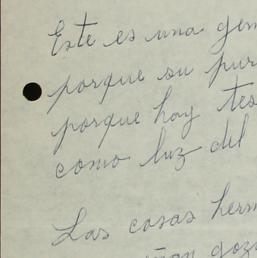 Este es una gem
porque su pur
porque hay tes
como luz del
Las cosas herm
ñan goz